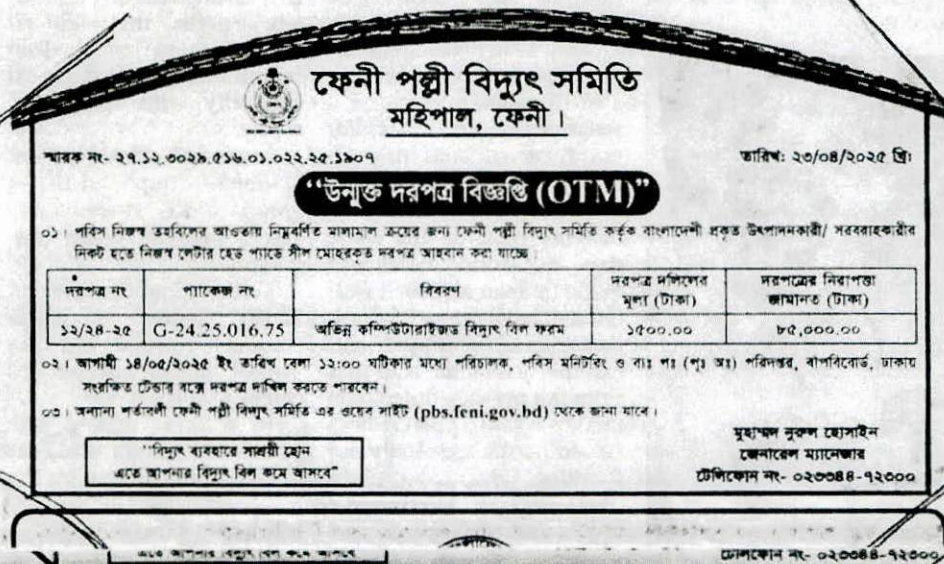 ফেনী পল্লী বিদ্যুৎ সমিতি
মহিপাল, ফেনী।
স্মারক নং- ২৭.১২.৩০২৯.৫১৬.০১.০২২.২৫.১৯০৭
তারিখ: ২৩/০৪/২০২৫ খ্রি:
“উন্মুক্ত দরপত্র বিজ্ঞপ্তি (OTM)”
০১। পবিস নিজস্ব তহবিলের আওতায় নিম্নবর্ণিত মালামাল ক্রয়ের জন্য ফেনী পল্লী বিদ্যুৎ সমিতি কর্তৃক বাংলাদেশী প্রকৃত উৎপাদনকারী/ সরবরাহকারীর
নিকট হতে নিজস্ব লেটার হেড প্যাডে সীল মোহরকৃত দরপত্র আহবান করা যাচ্ছে।
দরপত্র নং প্যাকেজ নং বিবরণ দরপত্র দলিলের মূল্য (টাকা) দরপত্রের নিরাপত্তা জামানত (টাকা)
১২/২৪-২৫ G-24.25.016.75 অভিন্ন কম্পিউটারাইজড বিদ্যুৎ বিল ফরম ১৫০০.০০ ৮৫,০০০.০০
০২। আগামী ১৪/০৫/২০২৫ ইং তারিখ বেলা ১২:০০ ঘটিকার মধ্যে পরিচালক, পবিস মনিটরিং ও ব্যঃ পঃ (পূঃ অঃ) পরিদপ্তর, বাপবিবোর্ড, ঢাকায়
সংরক্ষিত টেন্ডার বক্সে দরপত্র দাখিল করতে পারবেন।
০৩। অন্যান্য শর্তাবলী ফেনী পল্লী বিদ্যুৎ সমিতি এর ওয়েব সাইট (pbs.feni.gov.bd) থেকে জানা যাবে।
“বিদ্যুৎ ব্যবহারে সাশ্রয়ী হোন
এতে আপনার বিদ্যুৎ বিল কমে আসবে”
মুহাম্মদ নুরুল হোসাইন
জেনারেল ম্যানেজার
টেলিফোন নং- ০২৩৩৪৪-৭২৩০০
এতে আপনার বিদ্যুৎ বিল কমে আসবে
টেলিফোন নং- ০২৩৩৪৪-৭২৩০০